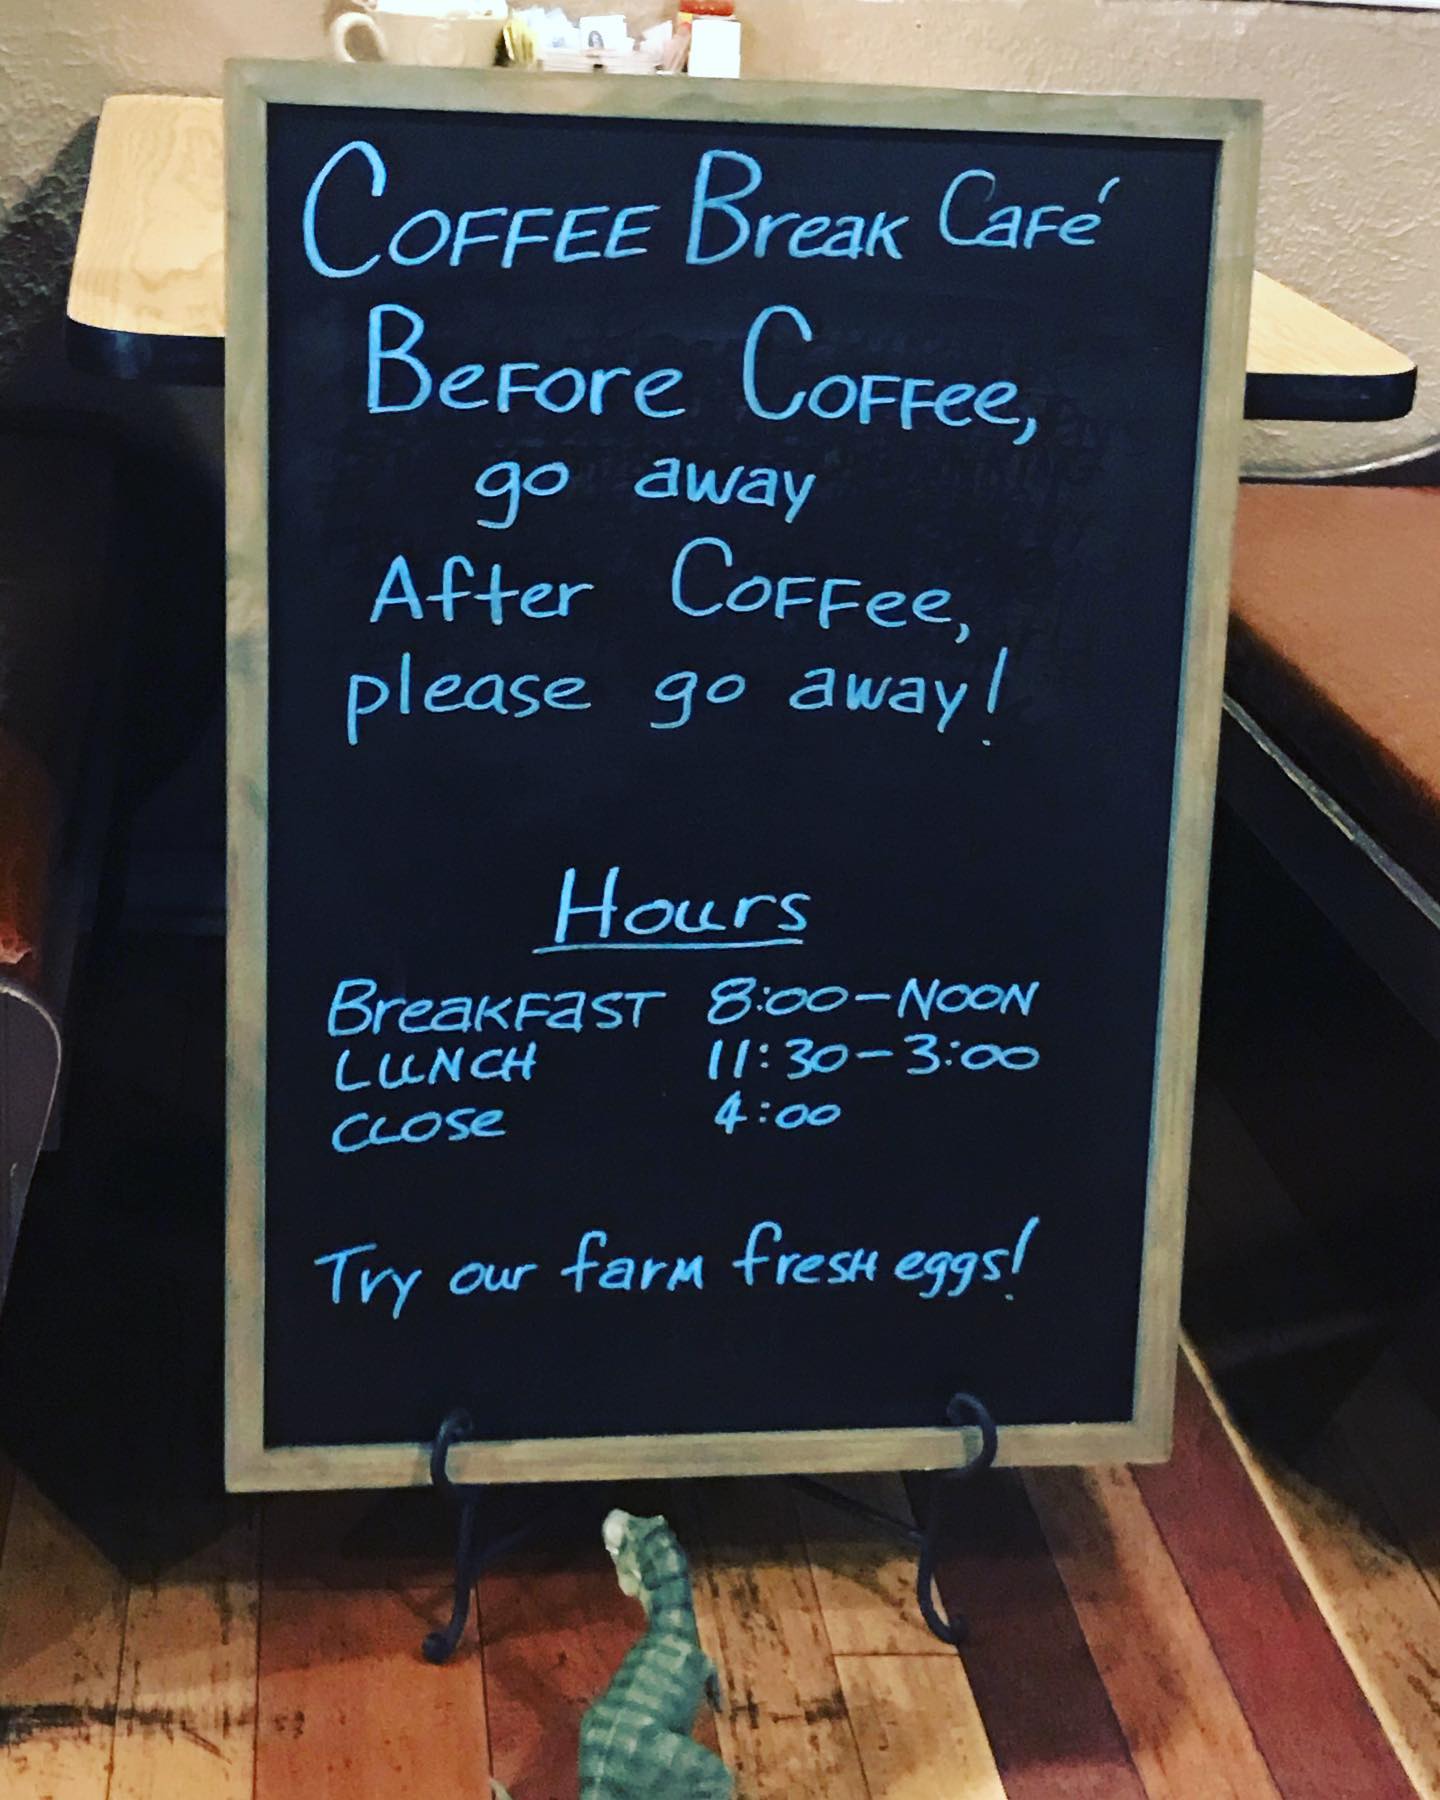 Coffee Break Café
Before Coffee,
go away
After Coffee,
please go away!
Hours
Breakfast 8:00-NOON
LUNCH 11:30-3:00
CLOSE 4:00
Try our farm fresh eggs!